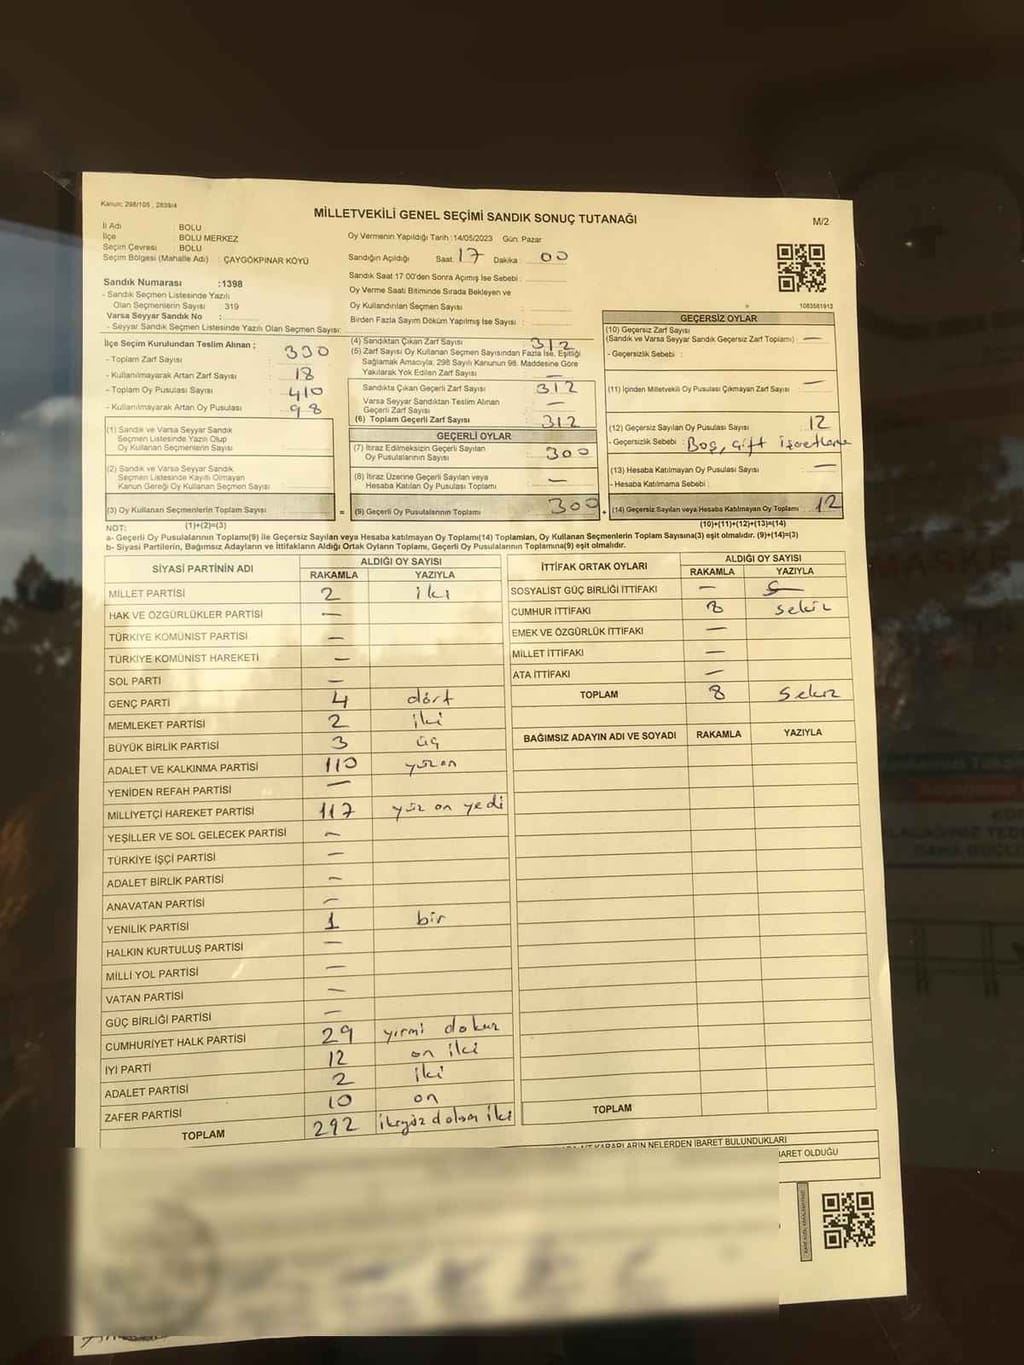 Kanun: 298/105 , 2839/4
MİLLETVEKİLİ GENEL SEÇİMİ SANDIK SONUÇ TUTANAĞI
M/2
İl Adı : BOLU
İlçe : BOLU MERKEZ
Seçim Çevresi : BOLU
Seçim Bölgesi (Mahalle Adı) : ÇAYGÖKPINAR KÖYÜ
Oy Vermenin Yapıldığı Tarih :14/05/2023 Gün: Pazar
Sandığın Açıldığı Saat 17 Dakika : 00
Sandık Saat 17:00'den Sonra Açılmış İse Sebebi :
Oy Verme Saati Bitiminde Sırada Bekleyen ve
Oy Kullandırılan Seçmen Sayısı :
Birden Fazla Sayım Döküm Yapılmış İse Sayısı :
Sandık Numarası :1398
- Sandık Seçmen Listesinde Yazılı
Olan Seçmenlerin Sayısı 319
Varsa Seyyar Sandık No :
- Seyyar Sandık Seçmen Listesinde Yazılı Olan Seçmen Sayısı:
1083581913
İlçe Seçim Kurulundan Teslim Alınan ;
- Toplam Zarf Sayısı : 330
- Kullanılmayarak Artan Zarf Sayısı : 18
- Toplam Oy Pusulası Sayısı : 410
- Kullanılmayarak Artan Oy Pusulası : 98
(1) Sandık ve Varsa Seyyar Sandık
Seçmen Listesinde Yazılı Olup
Oy Kullanan Seçmenlerin Sayısı :
(2) Sandık ve Varsa Seyyar Sandık
Seçmen Listesinde Kayıtlı Olmayan
Kanun Gereği Oy Kullanan Seçmen Sayısı :
(3) Oy Kullanan Seçmenlerin Toplam Sayısı :
(4) Sandıktan Çıkan Zarf Sayısı : 312
(5) Zarf Sayısı Oy Kullanan Seçmen Sayısından Fazla İse, Eşitliği
Sağlamak Amacıyla, 298 Sayılı Kanunun 98. Maddesine Göre
Yakılarak Yok Edilen Zarf Sayısı : —
Sandıkta Çıkan Geçerli Zarf Sayısı : 312
Varsa Seyyar Sandıktan Teslim Alınan
Geçerli Zarf Sayısı : —
(6) Toplam Geçerli Zarf Sayısı : 312
GEÇERLİ OYLAR
(7) İtiraz Edilmeksizin Geçerli Sayılan
Oy Pusulalarının Sayısı : 300
(8) İtiraz Üzerine Geçerli Sayılan veya
Hesaba Katılan Oy Pusulası Toplamı : —
= (9) Geçerli Oy Pusulalarının Toplamı : 300
GEÇERSİZ OYLAR
(10) Geçersiz Zarf Sayısı
(Sandık ve Varsa Seyyar Sandık Geçersiz Zarf Toplamı) : —
- Geçersizlik Sebebi :
(11) İçinden Milletvekili Oy Pusulası Çıkmayan Zarf Sayısı : —
(12) Geçersiz Sayılan Oy Pusulası Sayısı : 12
- Geçersizlik Sebebi : Boş, çift işaretleme
(13) Hesaba Katılmayan Oy Pusulası Sayısı : —
- Hesaba Katılmama Sebebi :
+ (14) Geçersiz Sayılan veya Hesaba Katılmayan Oy Toplamı : 12
NOT: (1)+(2)=(3) (10)+(11)+(12)+(13)=(14)
a- Geçerli Oy Pusulalarının Toplamı(9) ile Geçersiz Sayılan veya Hesaba katılmayan Oy Toplamı(14) Toplamları, Oy Kullanan Seçmenlerin Toplam Sayısına(3) eşit olmalıdır. (9)+(14)=(3)
b- Siyasi Partilerin, Bağımsız Adayların ve İttifakların Aldığı Ortak Oyların Toplamı, Geçerli Oy Pusulalarının Toplamına(9) eşit olmalıdır.
SİYASİ PARTİNİN ADI ALDIĞI OY SAYISI
RAKAMLA YAZIYLA
MİLLET PARTİSİ 2 iki
HAK VE ÖZGÜRLÜKLER PARTİSİ —
TÜRKİYE KOMÜNİST PARTİSİ —
TÜRKİYE KOMÜNİST HAREKETİ —
SOL PARTİ —
GENÇ PARTİ 4 dört
MEMLEKET PARTİSİ 2 iki
BÜYÜK BİRLİK PARTİSİ 3 üç
ADALET VE KALKINMA PARTİSİ 110 yüz on
YENİDEN REFAH PARTİSİ —
MİLLİYETÇİ HAREKET PARTİSİ 117 yüz on yedi
YEŞİLLER VE SOL GELECEK PARTİSİ —
TÜRKİYE İŞÇİ PARTİSİ —
ADALET BİRLİK PARTİSİ —
ANAVATAN PARTİSİ —
YENİLİK PARTİSİ 1 bir
HALKIN KURTULUŞ PARTİSİ —
MİLLİ YOL PARTİSİ —
VATAN PARTİSİ —
GÜÇ BİRLİĞİ PARTİSİ —
CUMHURİYET HALK PARTİSİ 29 yirmi dokuz
İYİ PARTİ 12 on iki
ADALET PARTİSİ 2 iki
ZAFER PARTİSİ 10 on
TOPLAM 292 ikiyüz doksan iki
İTTİFAK ORTAK OYLARI ALDIĞI OY SAYISI
RAKAMLA YAZIYLA
SOSYALİST GÜÇ BİRLİĞİ İTTİFAKI —
CUMHUR İTTİFAKI 8 sekiz
EMEK VE ÖZGÜRLÜK İTTİFAKI —
MİLLET İTTİFAKI —
ATA İTTİFAKI —
TOPLAM 8 sekiz
BAĞIMSIZ ADAYIN ADI VE SOYADI RAKAMLA YAZIYLA
TOPLAM
KARARLARIN NELERDEN İBARET BULUNDUKLARI
İBARET OLDUĞU